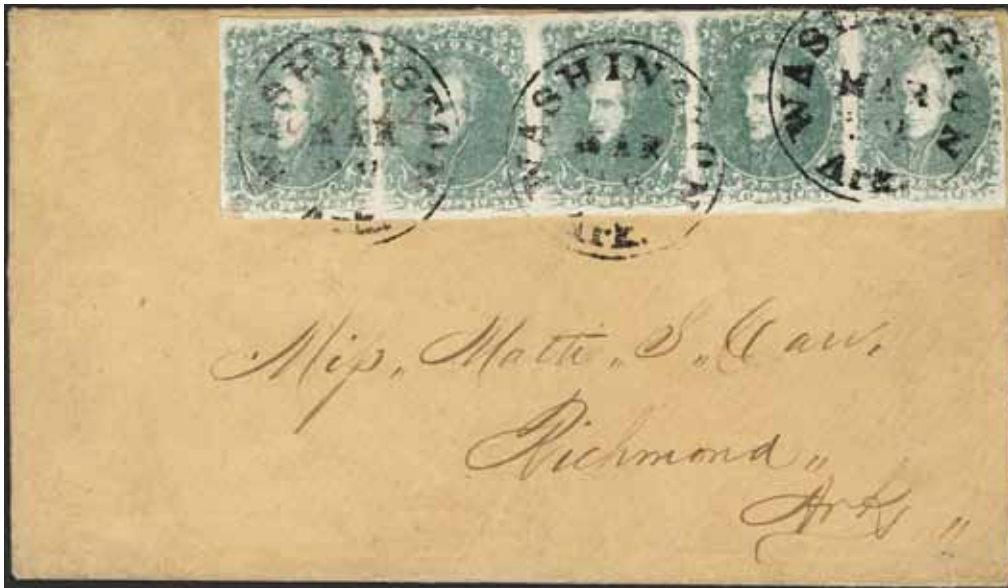 WASHINGTON
MAR
Ark.
WASHINGTON
MAR
Ark.
WASHINGTON
MAR
Ark.
Miss, Matti, S,
Richmond,,
Arks,,